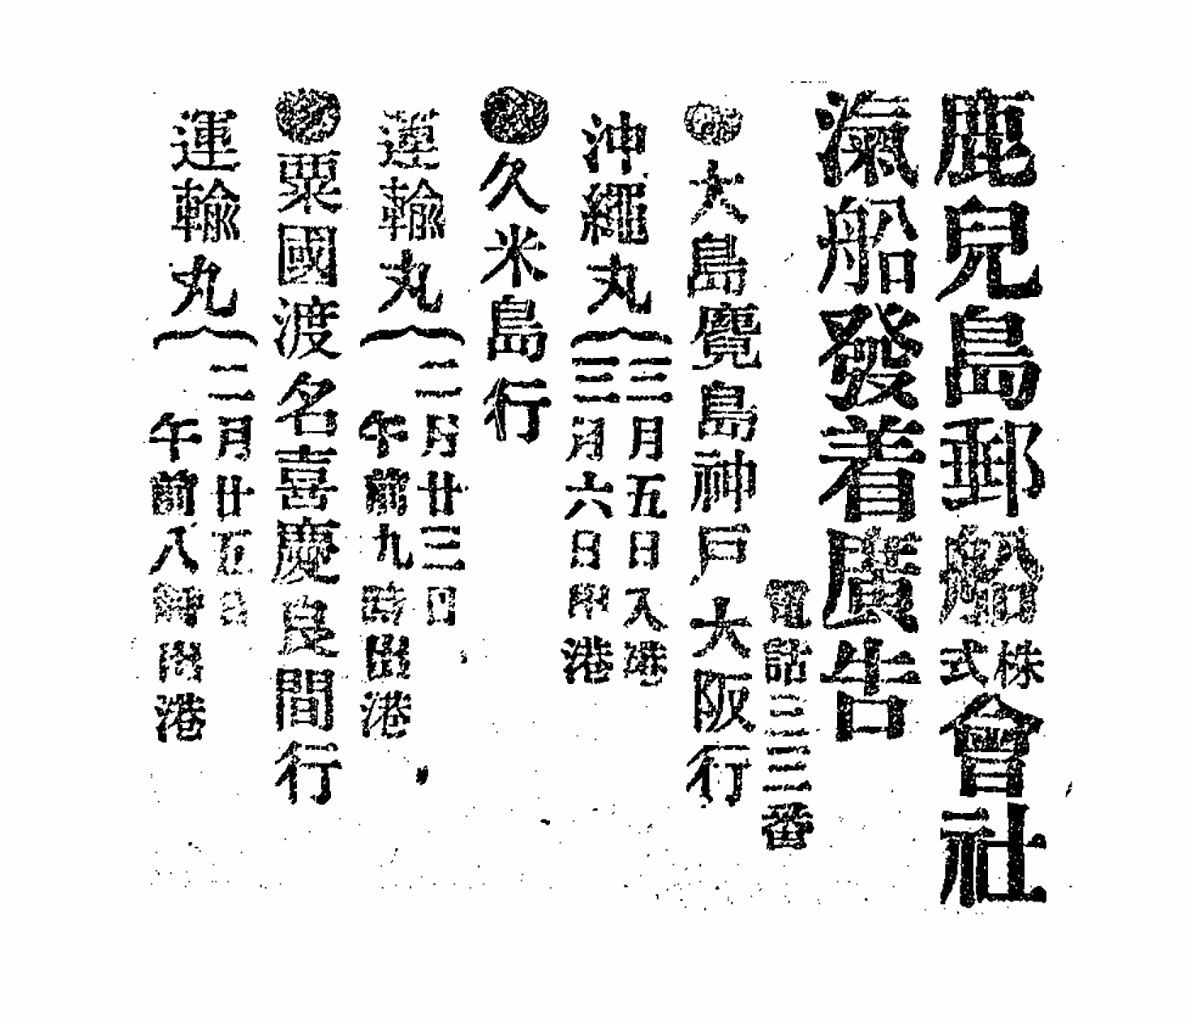 鹿兒島郵船株式會社
滊船發着廣告
電話三三番
●大島麑島神戸大阪行
沖繩丸
三月五日入港
三月六日出港
●久米島行
運輸丸
二月廿三日
午前九時出港
●粟國渡名喜慶良間行
運輸丸
二月廿五日
午前八時出港